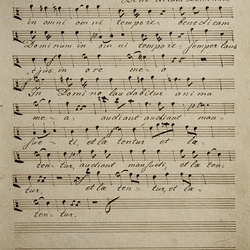 in omni omni tempore. benedicam
Dominum in omni tempore, semper laus
ejus in ore meo
In Domino laudabitur anima
mea. audiant audiant man-
sueti, et lae tentur et lae-
tentur, audiant mansueti, et lae ten-
tur, et lae tentur, et lae-
tentur,